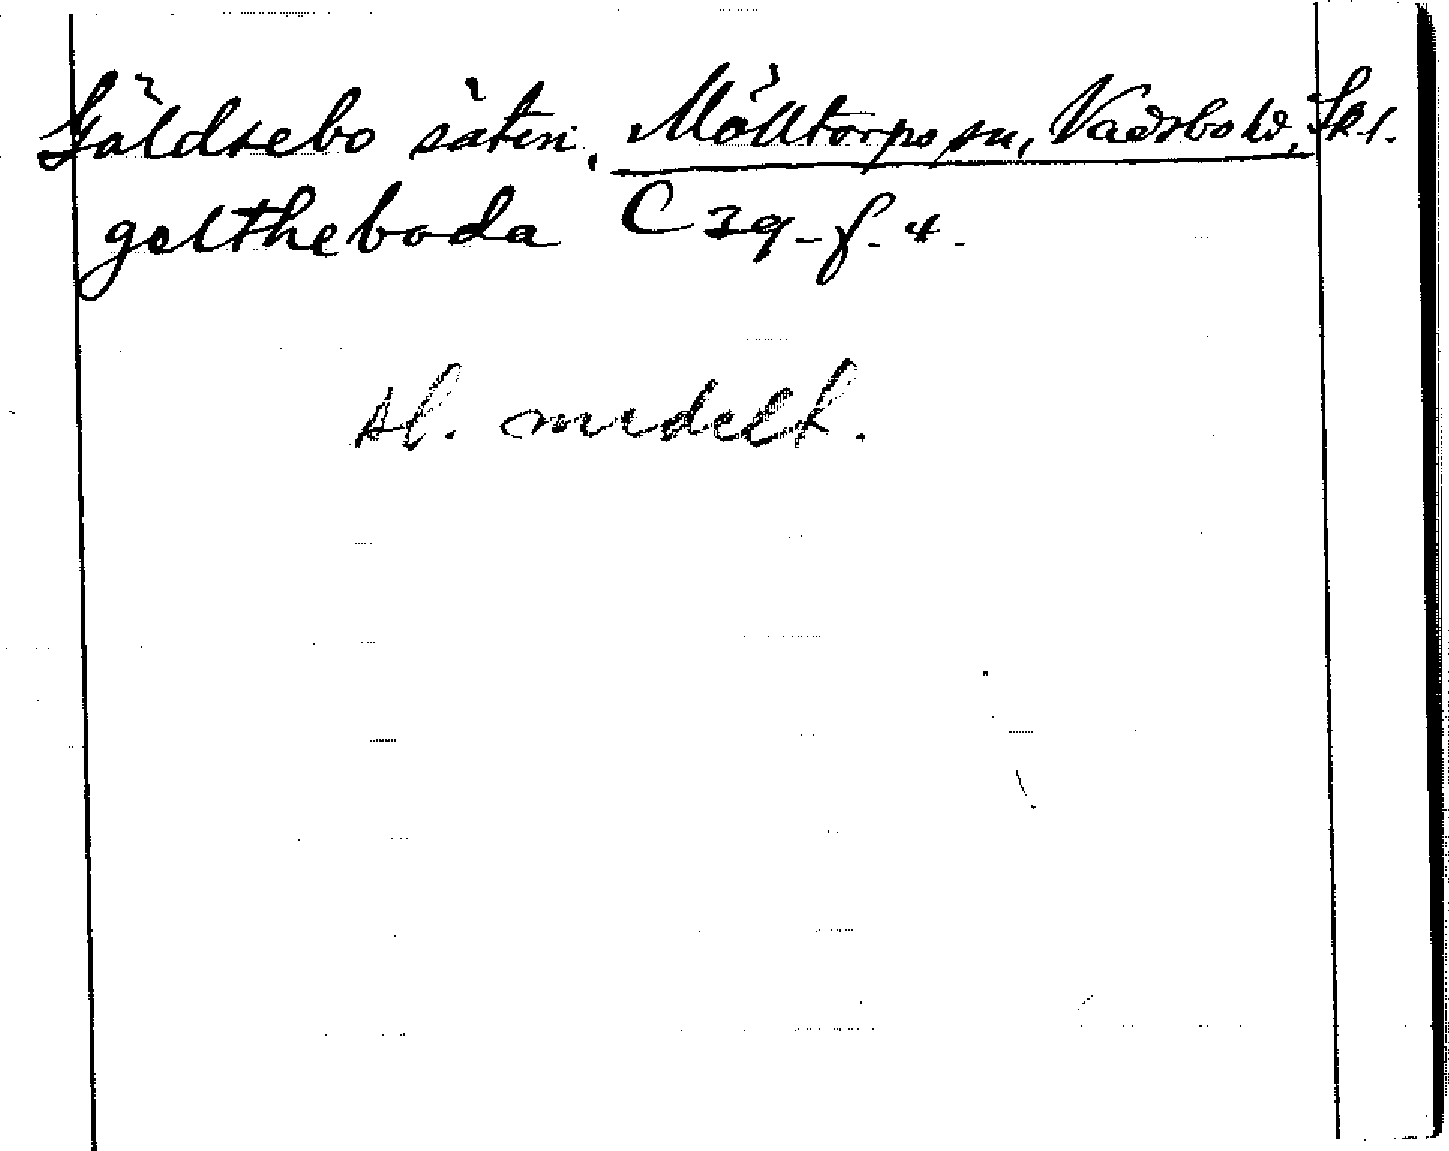 Göldsebo säteri. Mölltorps sn, Vadsbo hd, Sk l.
goltheboda C 39 - f. 4.
sl. medelt.